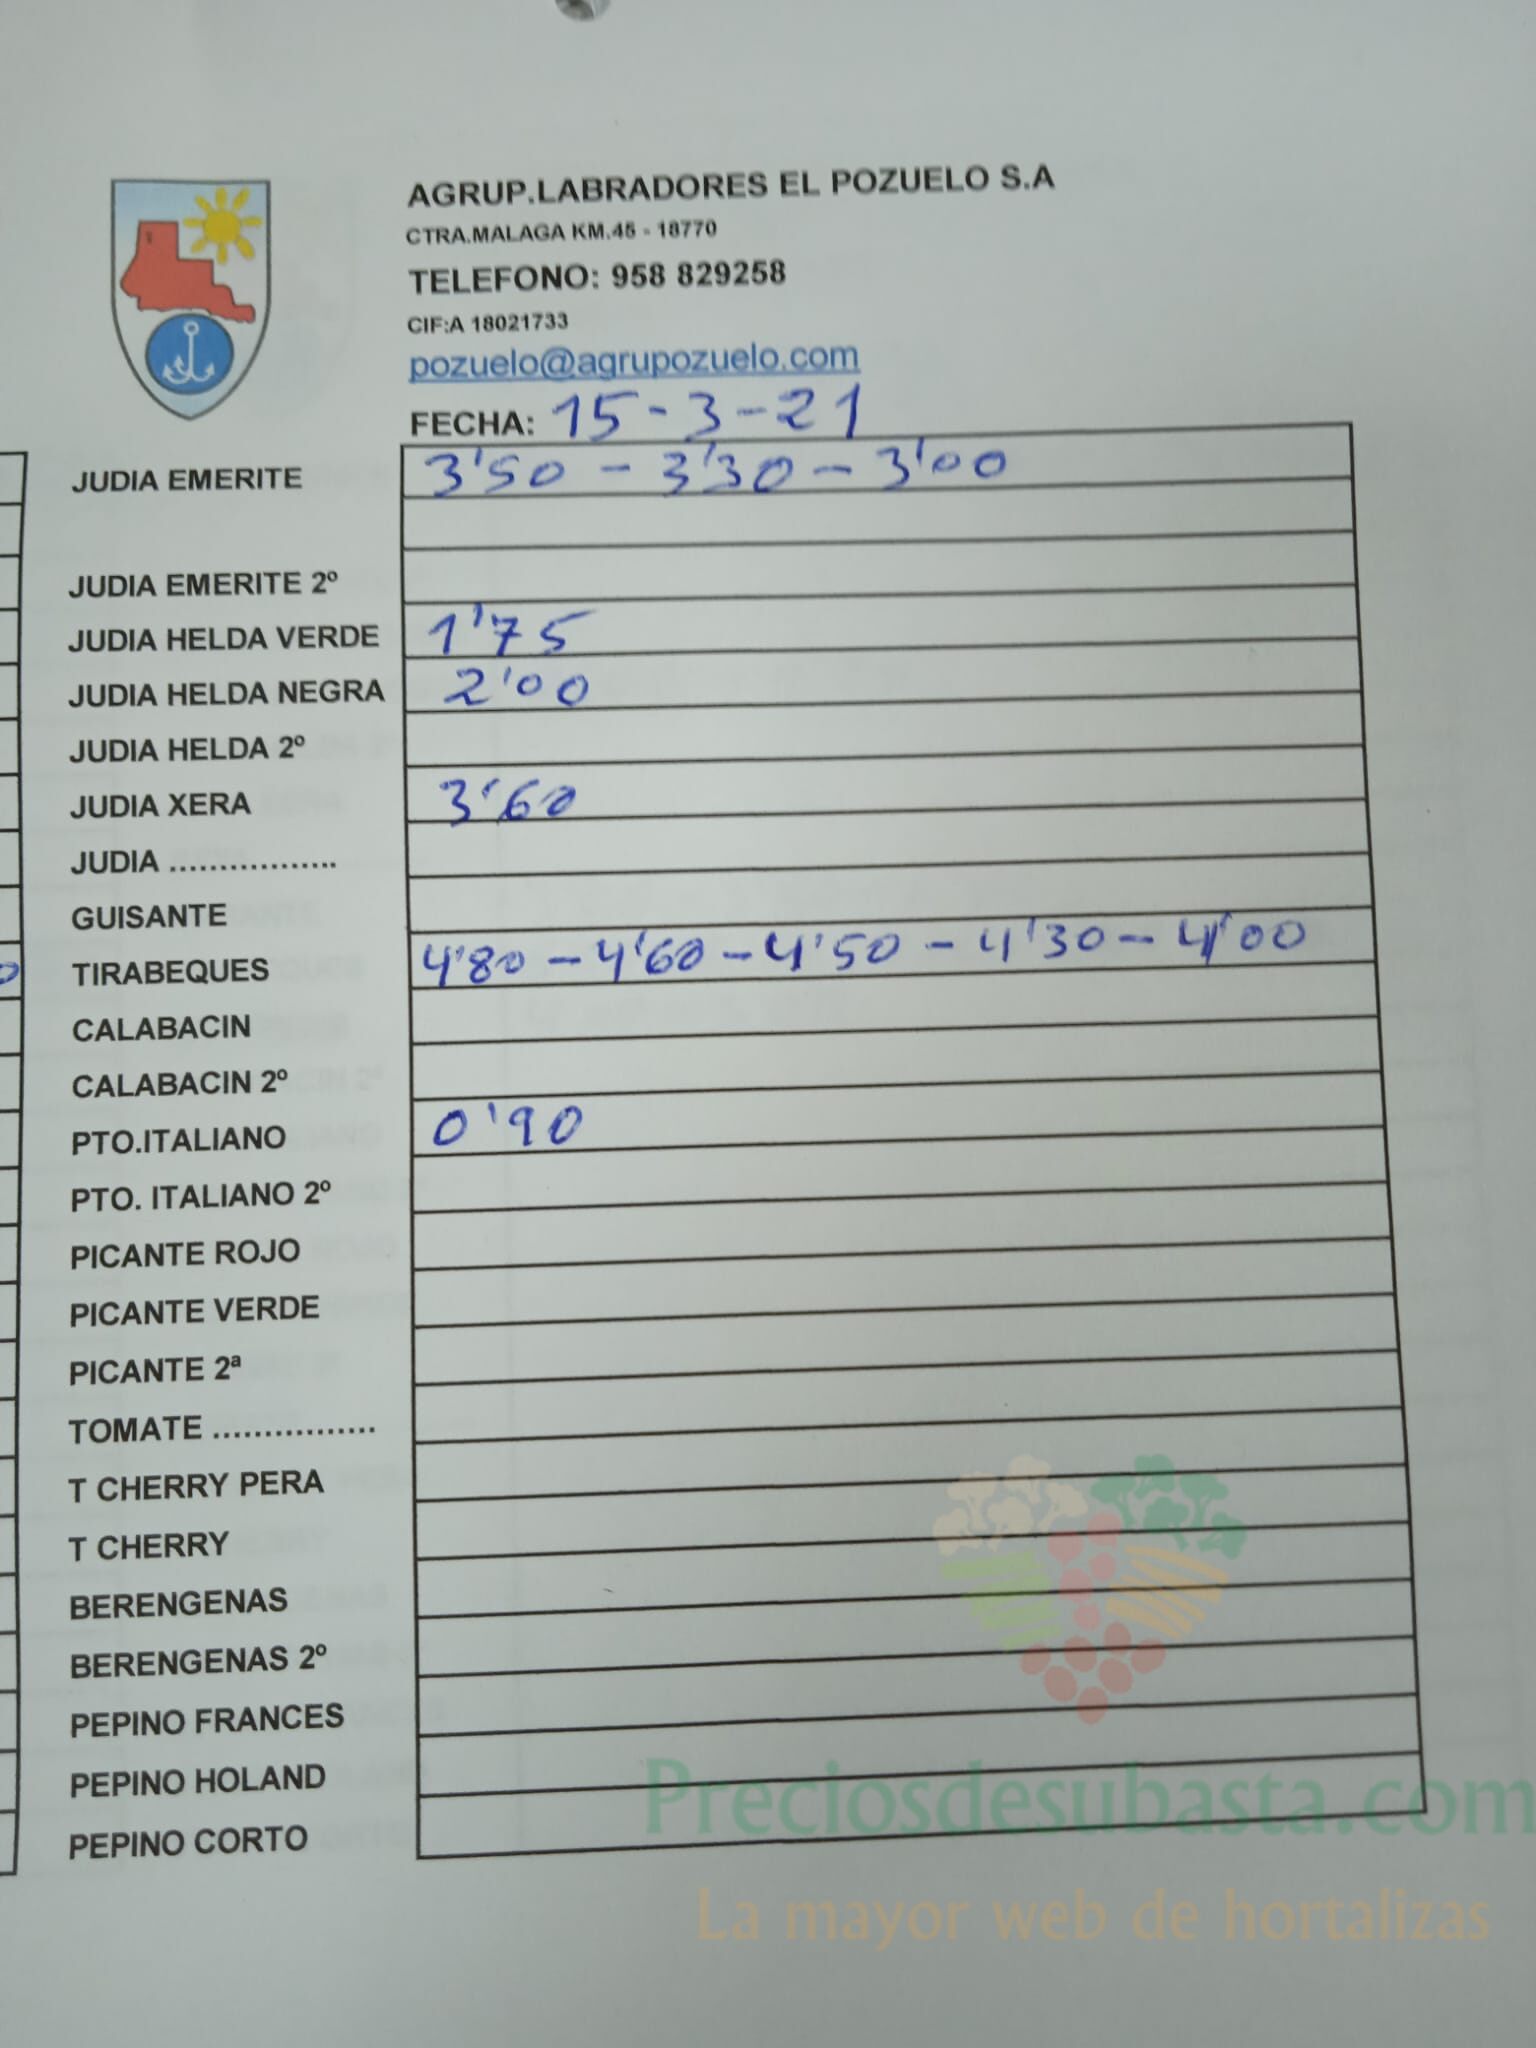 AGRUP.LABRADORES EL POZUELO S.A
CTRA.MALAGA KM.45 - 18770
TELEFONO: 958 829258
CIF:A 18021733
pozuelo@agrupozuelo.com
FECHA: 15-3-21
JUDIA EMERITE 3'50 - 3'30 - 3'00
JUDIA EMERITE 2º
JUDIA HELDA VERDE 1'75
JUDIA HELDA NEGRA 2'00
JUDIA HELDA 2º
JUDIA XERA 3'60
JUDIA ................
GUISANTE
TIRABEQUES 4'80 - 4'60 - 4'50 - 4'30 - 4'00
CALABACIN
CALABACIN 2º
PTO.ITALIANO 0'90
PTO. ITALIANO 2º
PICANTE ROJO
PICANTE VERDE
PICANTE 2ª
TOMATE ................
T CHERRY PERA
T CHERRY
BERENGENAS
BERENGENAS 2º
PEPINO FRANCES
PEPINO HOLAND
PEPINO CORTO
Preciosdesubasta.com
La mayor web de hortalizas